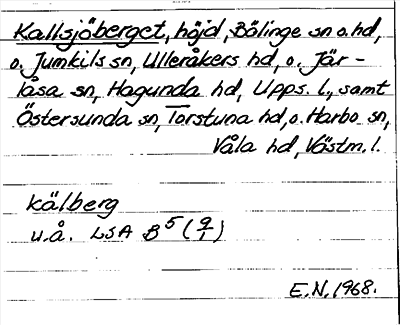 Kallsjöberget, höjd, Bälinge sn o. hd,
o. Jumkils sn, Ulleråkers hd, o. Jär-
låsa sn, Hagunda hd, Upps. l., samt
Östersunda sn, Torstuna hd, o. Harbo sn,
Våla hd, Västm. l.
kälberg
u.å. LSA B5 (9/1)
E.N. 1968.